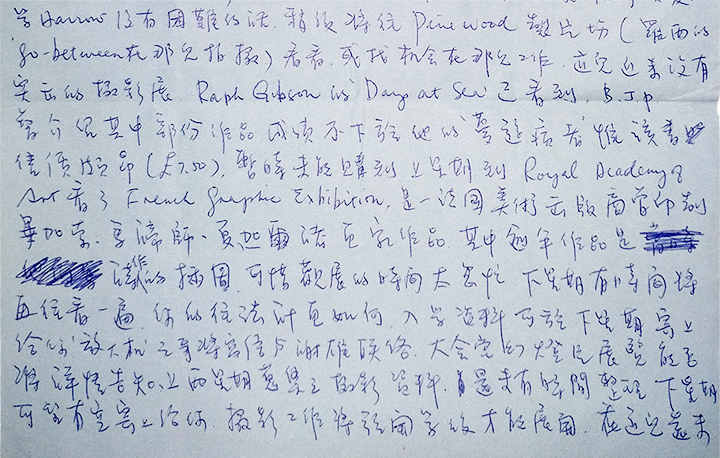 學Harrow沒有困難的話,稍後將往Pinewood製片場(羅西的
go-between在那兒拍攝)看看,或找机会在那兒工作.近兒近來沒有
突出的攝影展 Raph Gibson的"Days at Sea"已看到, B.J.P
曾介紹其中部份作品 成績不下於他的"夢遊病者"惟該書
售價頗昂(£7.50),暫時未能購到 上星期到Royal Academy of
Art看了French Graphic Exhibition,是一法國美術出版商曾印刻
畢加索.馬諦師.夏迦爾諸直家作品.其中 作品是
的插圖.可惜觀展的時間太怱忙 下星期有時間將
再往看一遍.你的往法計劃如何.入學資料可於下星期寄上
給你"放大机"之事將寫信与謝雄联絡.大会堂幻燈片展覽能否
將詳情告知.上兩星期蒐集之攝影資料.還未有時間整理 下星期
可望有空寄上給你.攝影工作將強開學後才能展開.在這兒還未